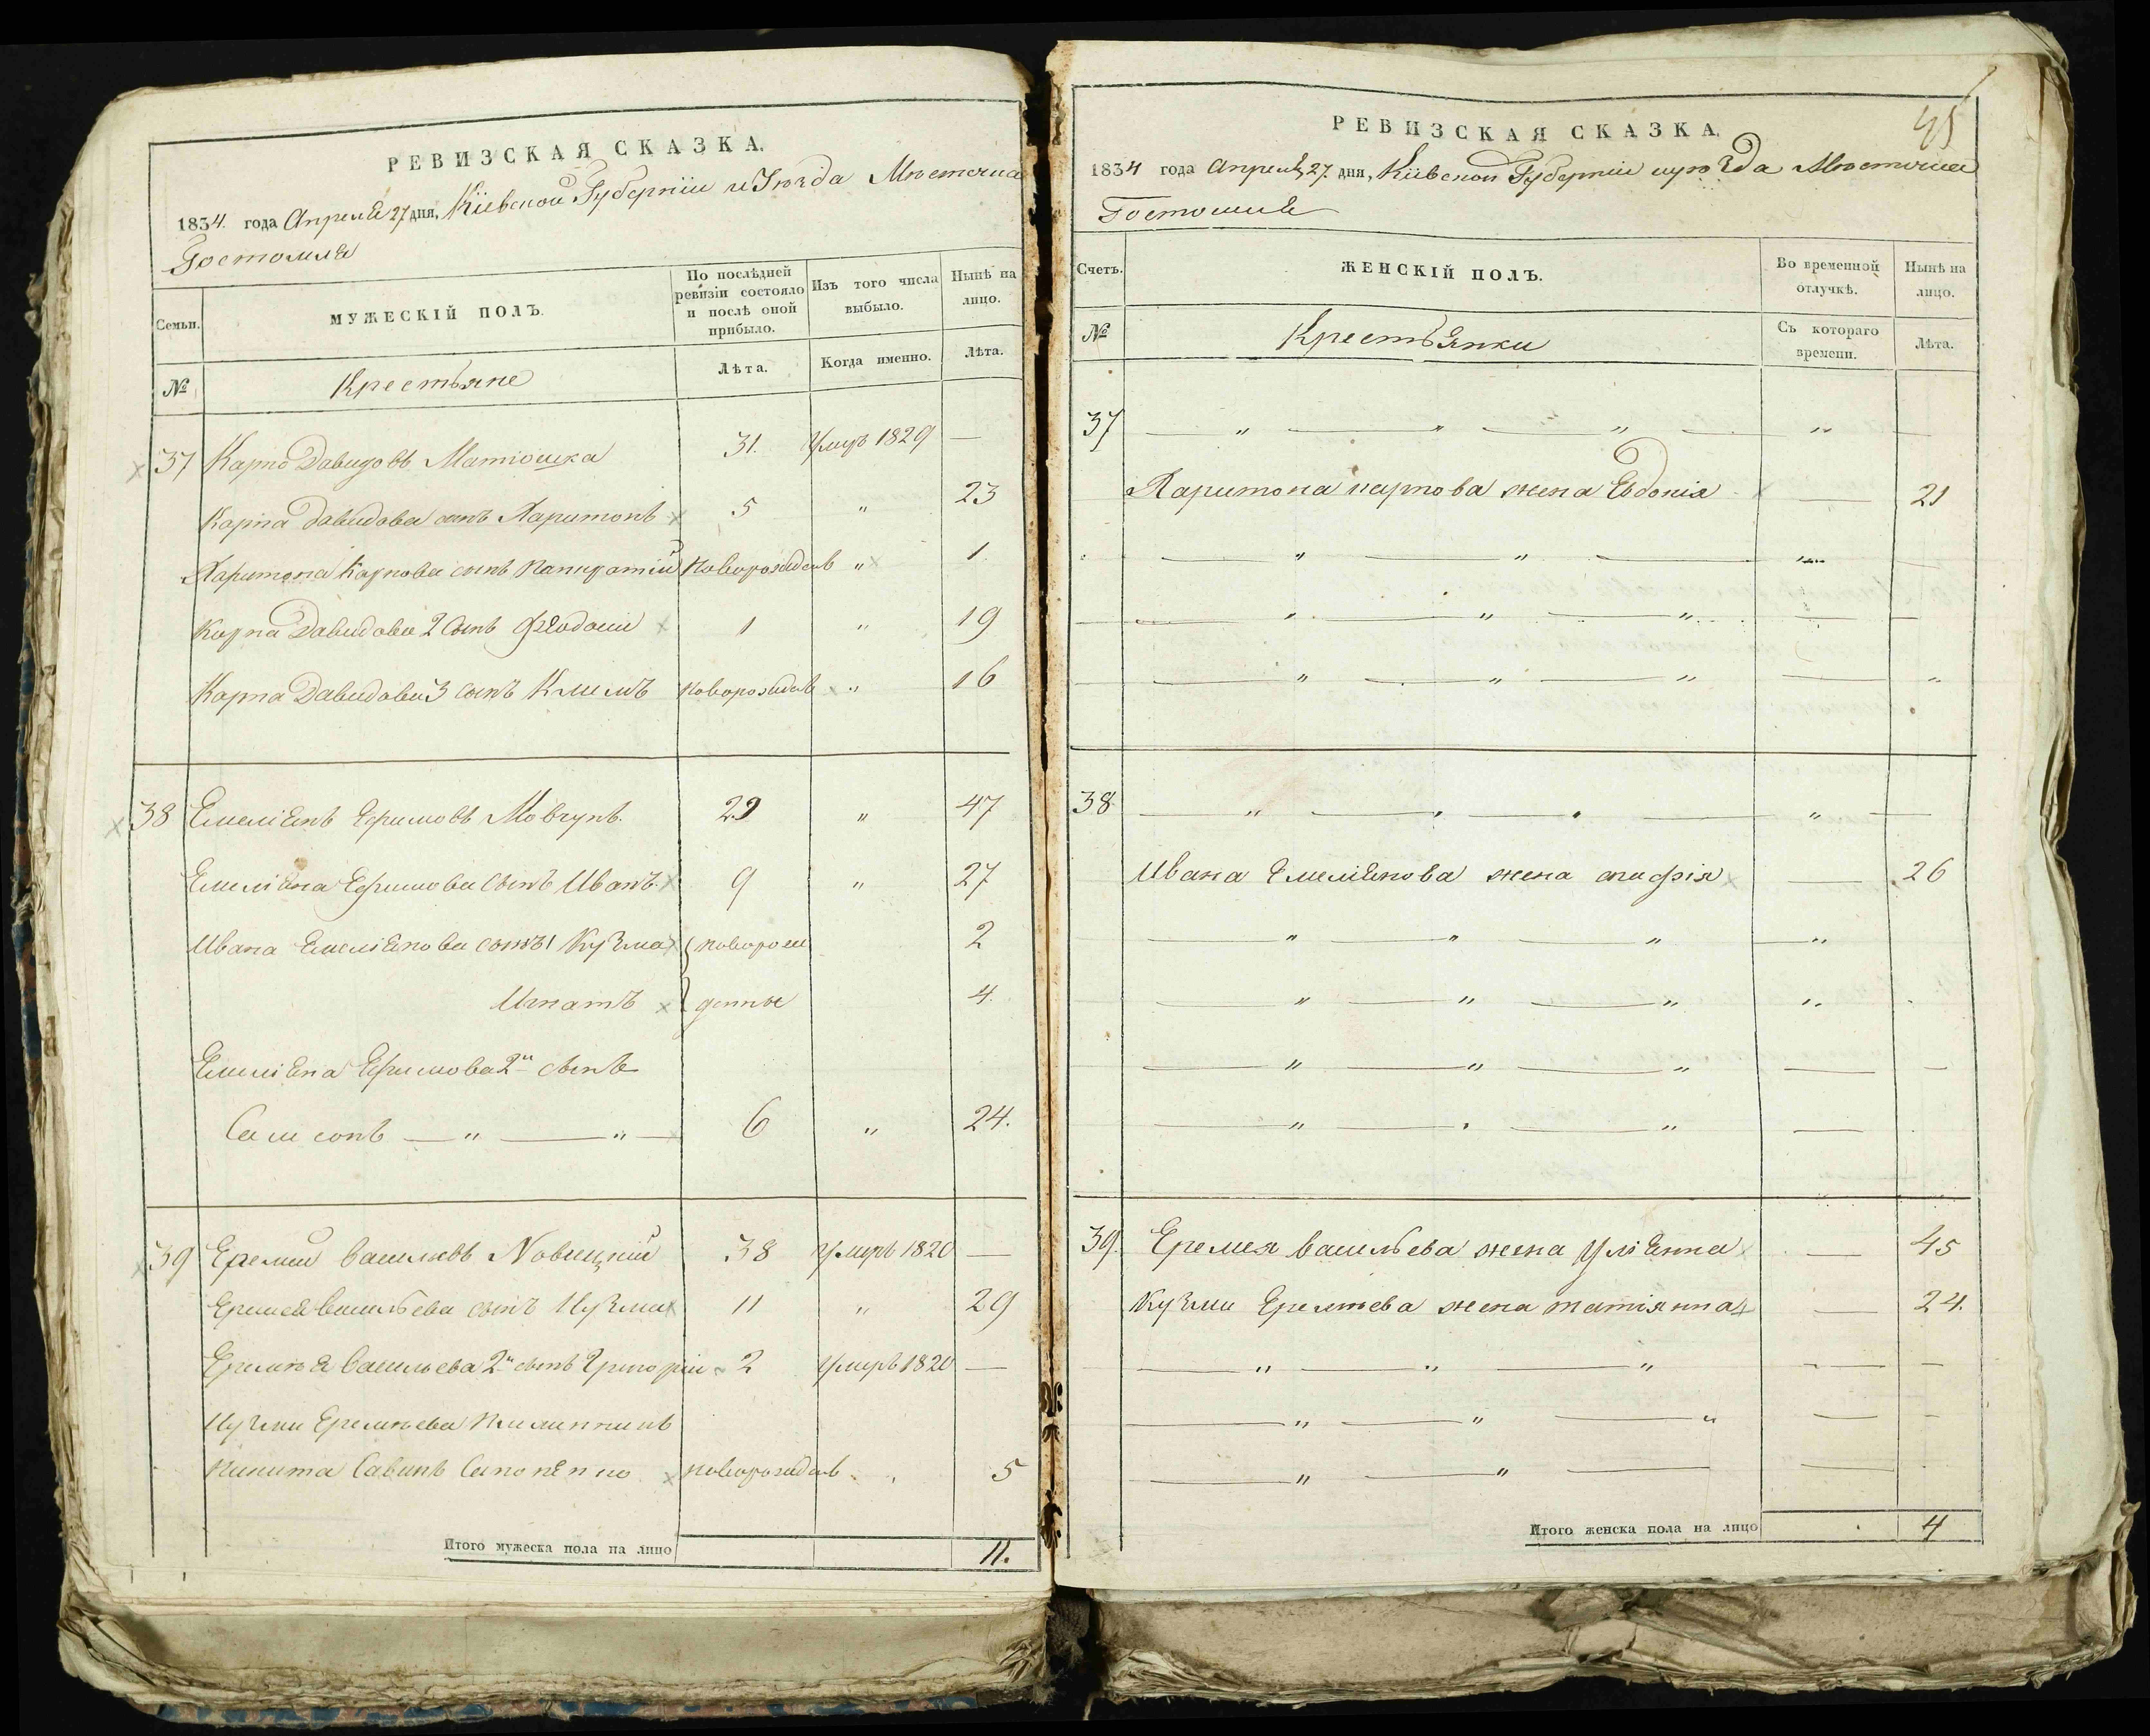 РЕВИЗСКАЯ СКАЗКА.
1834. года Апреля 27 дня, Кіевской Губерніи и Уѣзда Мѣстечка
Гостомля
Семьи.
МУЖЕСКІЙ ПОЛЪ.
По послѣдней ревизіи состояло и послѣ оной прибыло.
Изъ того числа выбыло.
Нынѣ на лицо.
№
Крестьяне
Лѣта.
Когда именно.
Лѣта.
37 Карпо Давидовъ Матюшка 31. Умръ 1829 —
Карпа Давидова сынъ Харитонъ 5 " 23
Харитона Карпова сынъ Панкратій новорожденъ " 1
Карпа Давидова 2 сынъ Феодосіи 1 " 19
Карпа Давидова 3 сынъ Климъ новорожденъ " 16
38 Емеліянъ Ефимовъ Мовчунъ. 29 " 47
Емеліяна Ефимова сынъ Иванъ. 9 " 27
Ивана Емеліянова сынъ 1 Кузма новорож 2
Игнатъ денные 4.
Емеліяна Ефимова 2й сынъ
Самсонъ — " — " — 6 " 24.
39 Еремій Васильевъ Новицкій 38 Умръ 1820 —
Еремея Васильева сынъ Кузма 11 " 29
Еремѣя Васильева 2й сынъ Григоріи 2 Умръ 1820 —
Кузми Еремѣева племянникъ
Никита Савинъ Сапоненко новорожденъ 5
Итого мужеска пола на лицо 11.
45
РЕВИЗСКАЯ СКАЗКА.
1834 года Апреля 27. дня, Кіевской Губерніи и уѣзда Мѣстечка
Гостомля
Счетъ.
ЖЕНСКІЙ ПОЛЪ.
Во временной отлучкѣ.
Нынѣ на лицо.
№
Крестьянки
Съ котораго времени.
Лѣта.
37 — " — " — " — " —
Харитона Карпова жена Евдокія — 21
— " — " — " —
— " — " — " — —
— " — " — " — "
38 — " — " — " — " —
Ивана Емеліянова жена агафія — 26
— " — " — " — "
— " — " — " "
— " — " — " — —
— " — " — " —
39. Еремея Васильева жена Уліянна — 45
Кузми Еремѣева жена татіянна — 24.
— " — " — " — —
— " — " — " — —
— " — " — —
Итого женска пола на лицо 4